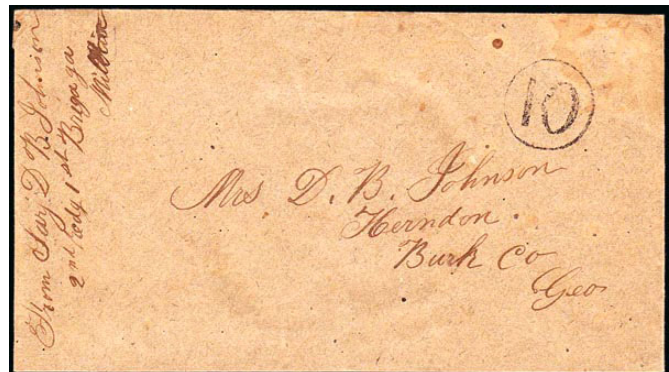 From Surj D B Johnson
2nd Redg 1st Brig ga
Militia
10
Mrs D. B. Johnson
Herndon.
Burk Co
Geo